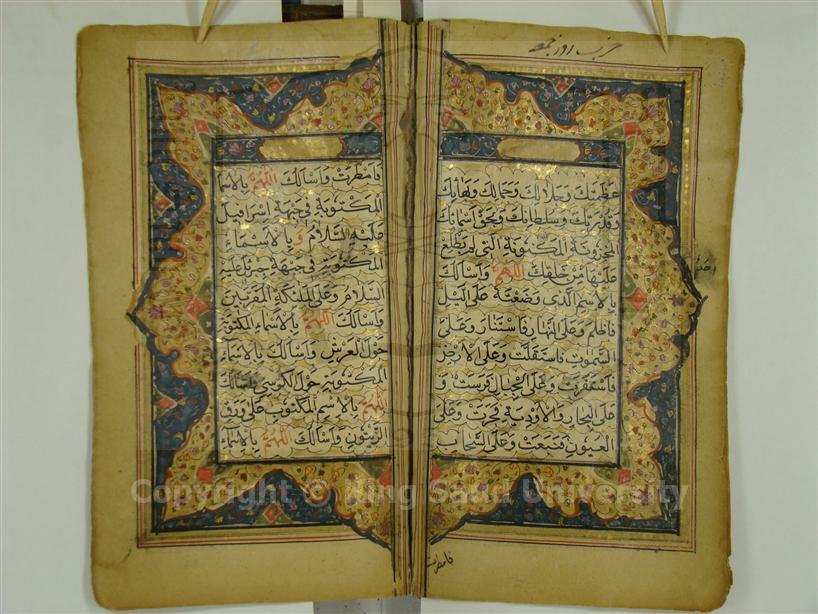 حزب روز جمعه
عظمتك وجلالك وجمالك وبهائك
وقدرتك وسلطانك وبحق اسمائك
المخزونة المكنونة التى لم يطلع
عليها من خلقك اللهم واسالك
بالاسم الذى وضعته على الليل
فاظلم وعلى النهار فاستنار وعلى
السموت فاستقلت وعلى الارض
فاستقرت وعلى الجبال فرست و
على البحار والاودية فجرت وعلى
العيون فنبعت وعلى السحاب
فامطرت
فامطرت واسالك اللهم بالاسما
المكتوبة فى جبهة اسرافيل
عليه السلام و بالاسماء
المكتوبة فى جبهة جبرئل عليه
السلام وعلى الملئكة المقربين
واسالك اللهم بالاسماء المكتوبة
حول العرش واسالك بالاسماء
المكتوبة حول الكرسى واسالك
اللهم بالاسم المكتوب على ورق
الزيتون واسالك اللهم بالاسماء
Copyright © King Saud University